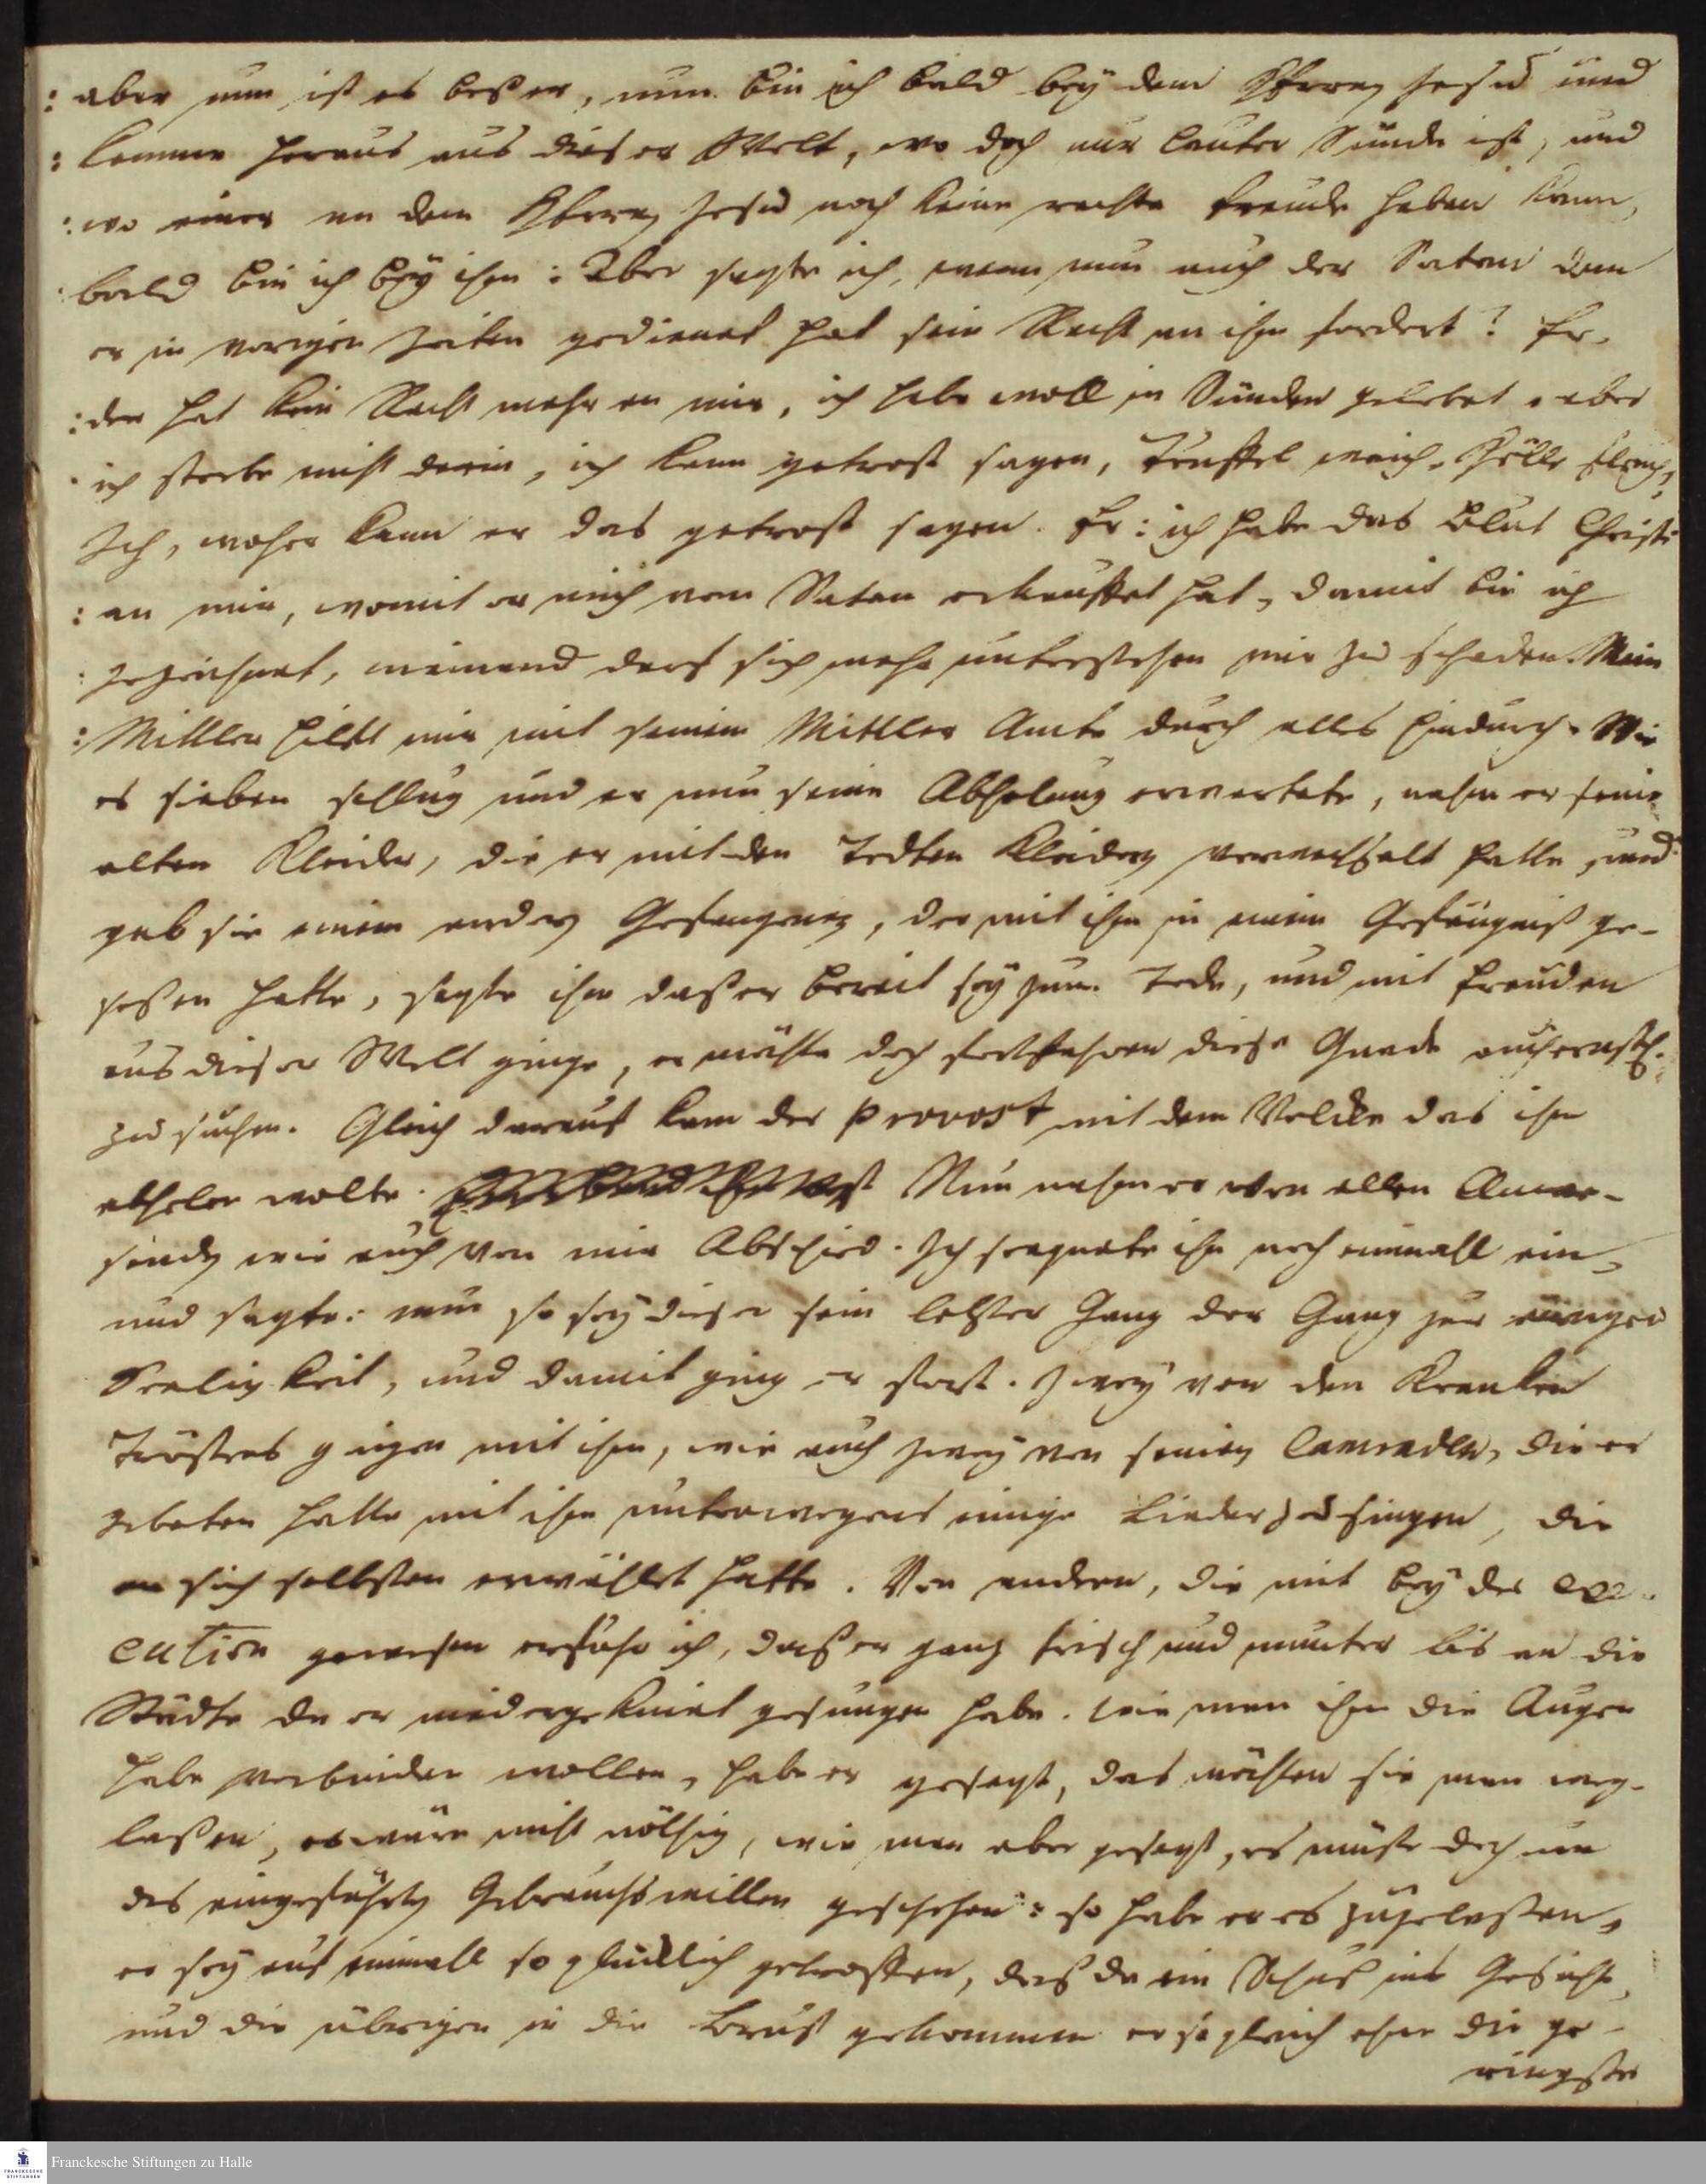 : aber nun ist es beßer, nun bin ich bald bey dem HErrn Jesu und
: komme heraus aus dieser Welt, wo doch nur lauter Sünde ist, und
: wo einer an dem HErrn Jesu noch keine rechte Freude haben kann,
: bald bin ich bey ihm : Aber sagte ich, wenn nun auch der Satan dem
er in vorigen Zeiten gedienet hat sein Recht an ihm fordert? Er.
: der hat kein Recht mehr an mir, ich habe woll in Sünden gelebet, aber
: ich sterbe nicht darin, ich kann getrost sagen, Teuffel weich, Hölle fleuch,
Ich, woher kann er das getrost sagen. Er : ich habe das Blut Christi
: an mir, womit er mich vom Satan erkauffet hat, damit bin ich
: gezeichnet, niemand darf sich mehr unterstehen mir zu schaden. Mein
: Mittler hilft mir mit seinem Mittler Amte durch alles hindurch. Wie
es sieben schlug und er nun seine Abholung erwartete, nahm er seine
alten Kleider, die er mit den Todten Kleidern verwechselt hatte, und
gab sie einem andern Gefangenen, der mit ihm in einem Gefängniß ge-
seßen hatte, sagte ihm daß er bereit sey zum Tode, und mit Freuden
aus dieser Welt ginge, er möchte doch fortfahren diese Gnade auch ernstl.
zu suchen. Gleich darauf kam der Provost mit dem Volcke das ihn
abholen wolte. Nun nahm er von allen Anwe-
senden wie auch von mir Abschied. Ich seegnete ihn noch einmall ein,
und sagte: nun so sey dieser sein letzter Gang der Gang zur ewigen
Seeligkeit, und damit ging er fort. Zwey von den Krancken
Tröstern gingen mit ihm, wie auch zwey von seinen Camraden, die er
gebeten hatte mit ihm unterwegens einige Lieder zu singen, die
er sich selbsten erwählet hatte. Von andern, die mit bey der exe-
cution gewesen erfuhr ich, daß er ganz frisch und munter bis an die
Städte da er niedergekniet gesungen habe. Wie man ihm die Augen
habe verbinden wollen, habe er gesagt, das möchten sie man weg-
laßen, es wäre nicht nöthig, wie man aber gesagt, es müste doch um
des eingeführten Gebrauchs willen geschehen : so habe er es zugelaßen,
er sey auf einmall so glücklich getroffen, daß da ein Schuß ins Gesichte,
und die übrigen in die Brust gekommen er so gleich ohne die ge-
ringste
Franckesche Stiftungen zu Halle